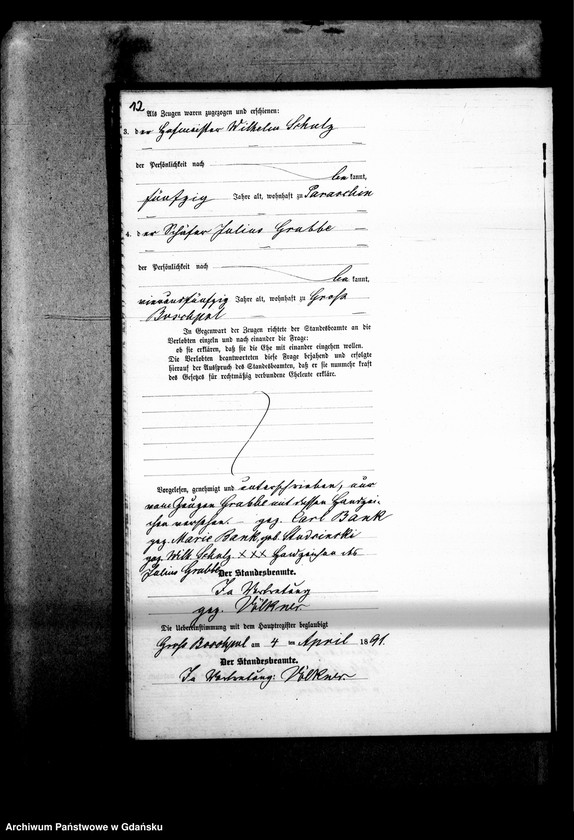 12
Als Zeugen waren zugezogen und erschienen:
3. der Hofmeister Wilhelm Schulz
der Persönlichkeit nach
bekannt,
fünfzig Jahre alt, wohnhaft zu Paraschin
4. der Schäfer Julius Grabbe
der Persönlichkeit nach
bekannt,
vierundfünfzig Jahre alt, wohnhaft zu Groß
Boschpol
In Gegenwart der Zeugen richtete der Standesbeamte an die
Verlobten einzeln und nach einander die Frage:
ob sie erklären, daß sie die Ehe mit einander eingehen wollen.
Die Verlobten beantworteten diese Frage bejahend und erfolgte
hierauf der Ausspruch des Standesbeamten, daß er sie nunmehr kraft
des Gesetzes für rechtmäßig verbundene Eheleute erkläre.
Vorgelesen, genehmigt und unterschrieben, nur
vom Zeugen Grabbe mit dessen Handzei-
chen versehen. gez. Carl Bank
gez. Marie Bank, geb. Studzinski
gez. Wilh. Schulz. XXX Handzeichen des
Julius Grabbe
Der Standesbeamte.
In Vertretung
gez. Völkner
Die Uebereinstimmung mit dem Hauptregister beglaubigt
Groß Boschpol am 4 ten April 1891.
Der Standesbeamte.
In Vertretung: Völkner
Archiwum Państwowe w Gdańsku